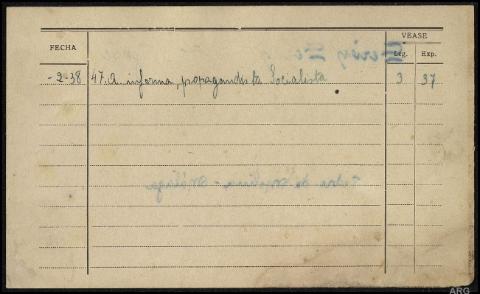 VÉASE
FECHA Leg. Exp.
-2-38 47.a informa, propagandista Socialista 3 37
ARG